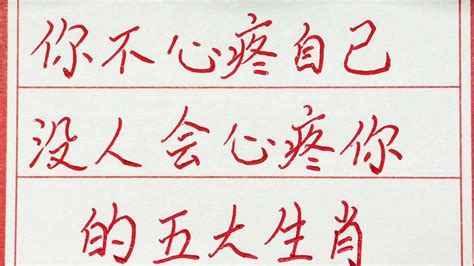 你不心疼自己
没人会心疼你
的五大生肖